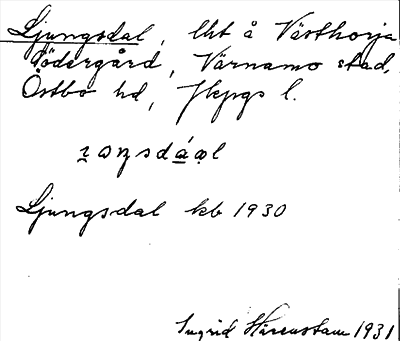 Ljungsdal, lht å Västhorja
Södergård, Värnamo stad,
Östbo hd, Jkpgs l.
Ljungsdal kb 1930
Ingrid Härenstam 1931